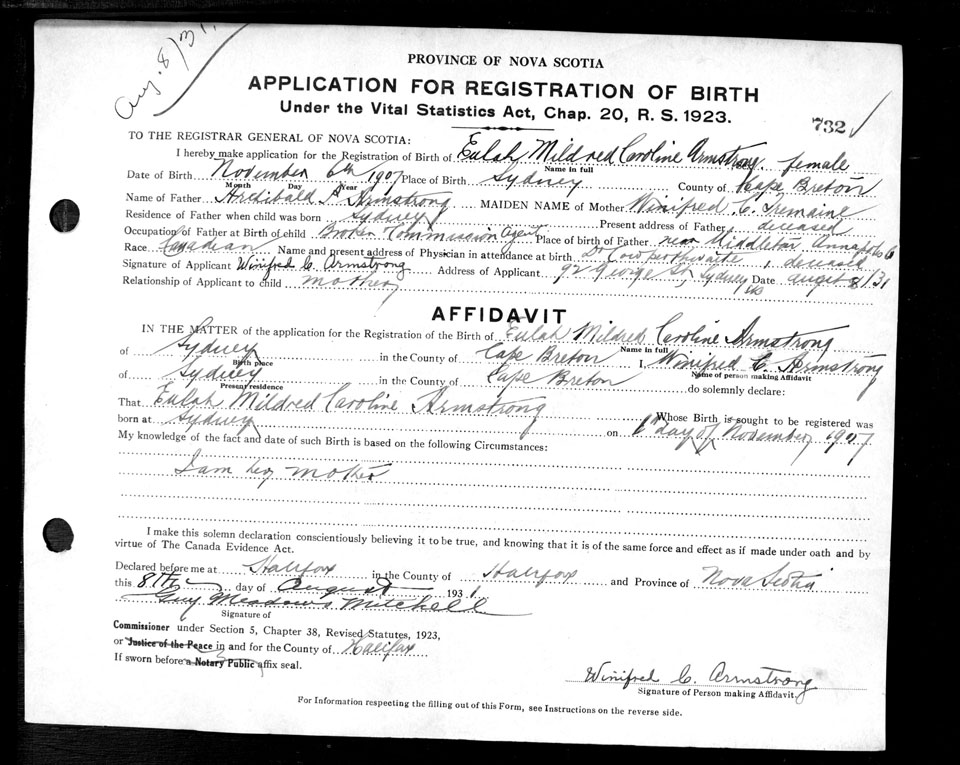 Aug. 8/31,
PROVINCE OF NOVA SCOTIA
APPLICATION FOR REGISTRATION OF BIRTH
Under the Vital Statistics Act, Chap. 20, R. S. 1923.
732
TO THE REGISTRAR GENERAL OF NOVA SCOTIA:
I hereby make application for the Registration of Birth of Eulah Mildred Caroline Armstrong. female
Name in full
Date of Birth November 6th 1907 Place of Birth Sydney County of Cape Breton
Month Day Year
Name of Father Archibald P. Armstrong MAIDEN NAME of Mother Winifred C. Tremaine
Residence of Father when child was born Sydney Present address of Father deceased
Occupation of Father at Birth of child Broker Commission agent Place of birth of Father near Middleton Annapolis Co
Race Canadian Name and present address of Physician in attendance at birth Dr Cowperthwaite, deceased
Signature of Applicant Winifred C. Armstrong Address of Applicant 92 George St, Sydney NS Date August 8/31
Relationship of Applicant to child mother
AFFIDAVIT
IN THE MATTER of the application for the Registration of the Birth of Eulah Mildred Caroline Armstrong
Name in full
of Sydney in the County of Cape Breton I Winifred C. Armstrong
Birth place Name of person making Affidavit
of Sydney in the County of Cape Breton do solemnly declare:
Present residence
That Eulah Mildred Caroline Armstrong Whose Birth is sought to be registered was
born at Sydney on 6th day of November 1907
My knowledge of the fact and date of such Birth is based on the following Circumstances:
I am her mother
I make this solemn declaration conscientiously believing it to be true, and knowing that it is of the same force and effect as if made under oath and by
virtue of The Canada Evidence Act.
Declared before me at Halifax in the County of Halifax and Province of Nova Scotia
this 8th day of August 1931
Guy Meadows Mitchell
Signature of
Commissioner under Section 5, Chapter 38, Revised Statutes, 1923,
or Justice of the Peace in and for the County of Halifax
If sworn before a Notary Public affix seal.
Winifred C. Armstrong
Signature of Person making Affidavit
For Information respecting the filling out of this Form, see Instructions on the reverse side.